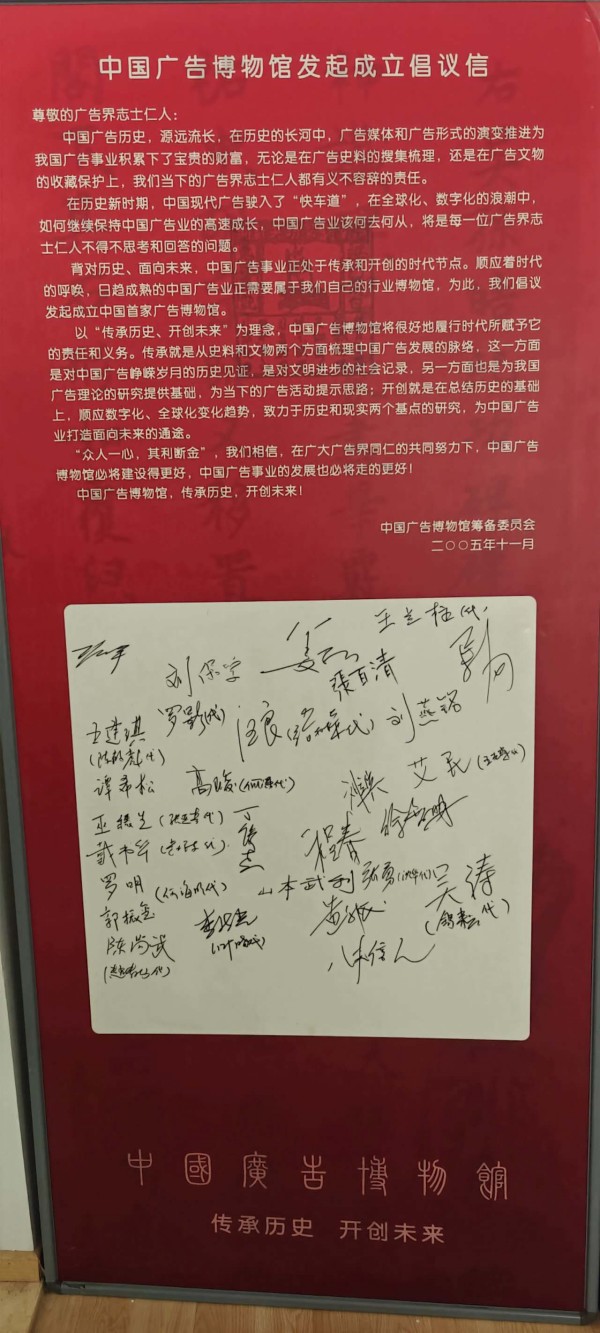 中国广告博物馆发起成立倡议信
尊敬的广告界志士仁人：
中国广告历史，源远流长，在历史的长河中，广告媒体和广告形式的演变推进为
我国广告事业积累下了宝贵的财富，无论是在广告史料的搜集梳理，还是在广告文物
的收藏保护上，我们当下的广告界志士仁人都有义不容辞的责任。
在历史新时期，中国现代广告驶入了“快车道”，在全球化、数字化的浪潮中，
如何继续保持中国广告业的高速成长，中国广告业该何去何从，将是每一位广告界志
士仁人不得不思考和回答的问题。
背对历史、面向未来，中国广告事业正处于传承和开创的时代节点。顺应着时代
的呼唤，日趋成熟的中国广告业正需要属于我们自己的行业博物馆，为此，我们倡议
发起成立中国首家广告博物馆。
以“传承历史、开创未来”为理念，中国广告博物馆将很好地履行时代所赋予它
的责任和义务。传承就是从史料和文物两个方面梳理中国广告发展的脉络，这一方面
是对中国广告峥嵘岁月的历史见证，是对文明进步的社会记录，另一方面也是为我国
广告理论的研究提供基础，为当下的广告活动提示思路；开创就是在总结历史的基础
上，顺应数字化、全球化变化趋势，致力于历史和现实两个基点的研究，为中国广告
业打造面向未来的通途。
“众人一心，其利断金”，我们相信，在广大广告界同仁的共同努力下，中国广告
博物馆必将建设得更好，中国广告事业的发展也必将走的更好！
中国广告博物馆，传承历史，开创未来！
中国广告博物馆筹备委员会
二〇〇五年十一月
刘保孚
張百清
刘燕锦
谭希松
高峻
艾民
罗明
山本武利
吴涛
郭振玺
陈尚武
中國廣告博物館
传承历史 开创未来